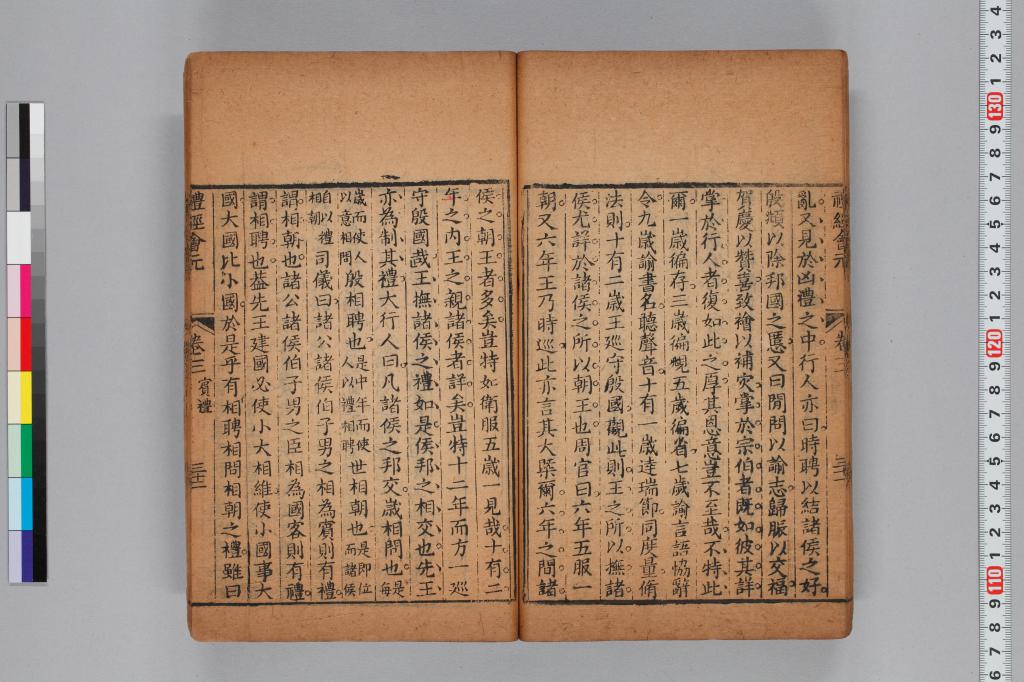 禮經會元
卷三
三十一
亂又見於凶禮之中行人亦曰時聘以結諸侯之好
殷頫以除邦國之慝又曰閒問以諭志歸脤以交福
賀慶以贊喜致禬以補灾掌於宗伯者既如彼其詳
掌於行人者復如此之厚其恩意豈不至哉不特此
爾一歲徧存三歲徧頫五歲徧省七歲諭言語恊辭
令九歲諭書名聽聲音十有一歲達瑞節同度量脩
法則十有二歲王廵守殷國觀此則王之所以撫諸
侯尤詳於諸侯之所以朝王也周官曰六年五服一
朝又六年王乃時廵此亦言其大槩爾六年之間諸
侯之朝王者多矣豈特如衛服五歲一見哉十有二
年之內王之親諸侯者詳矣豈特十二年而方一廵
守殷國哉王撫諸侯之禮如是侯邦之相交也先王
亦為制其禮大行人曰凡諸侯之邦交歲相問也是每
歲而使人以意相問殷相聘也是中年而使人以禮相聘世相朝也是即位而諸侯
自以禮相朝司儀曰諸公諸侯伯子男之相為賓則有禮
謂相朝也諸公諸侯伯子男之臣相為國客則有禮
謂相聘也葢先王建國必使小大相維使小國事大
國大國比小國於是乎有相聘相問相朝之禮雖曰
禮經會元
卷三
賓禮
三十二